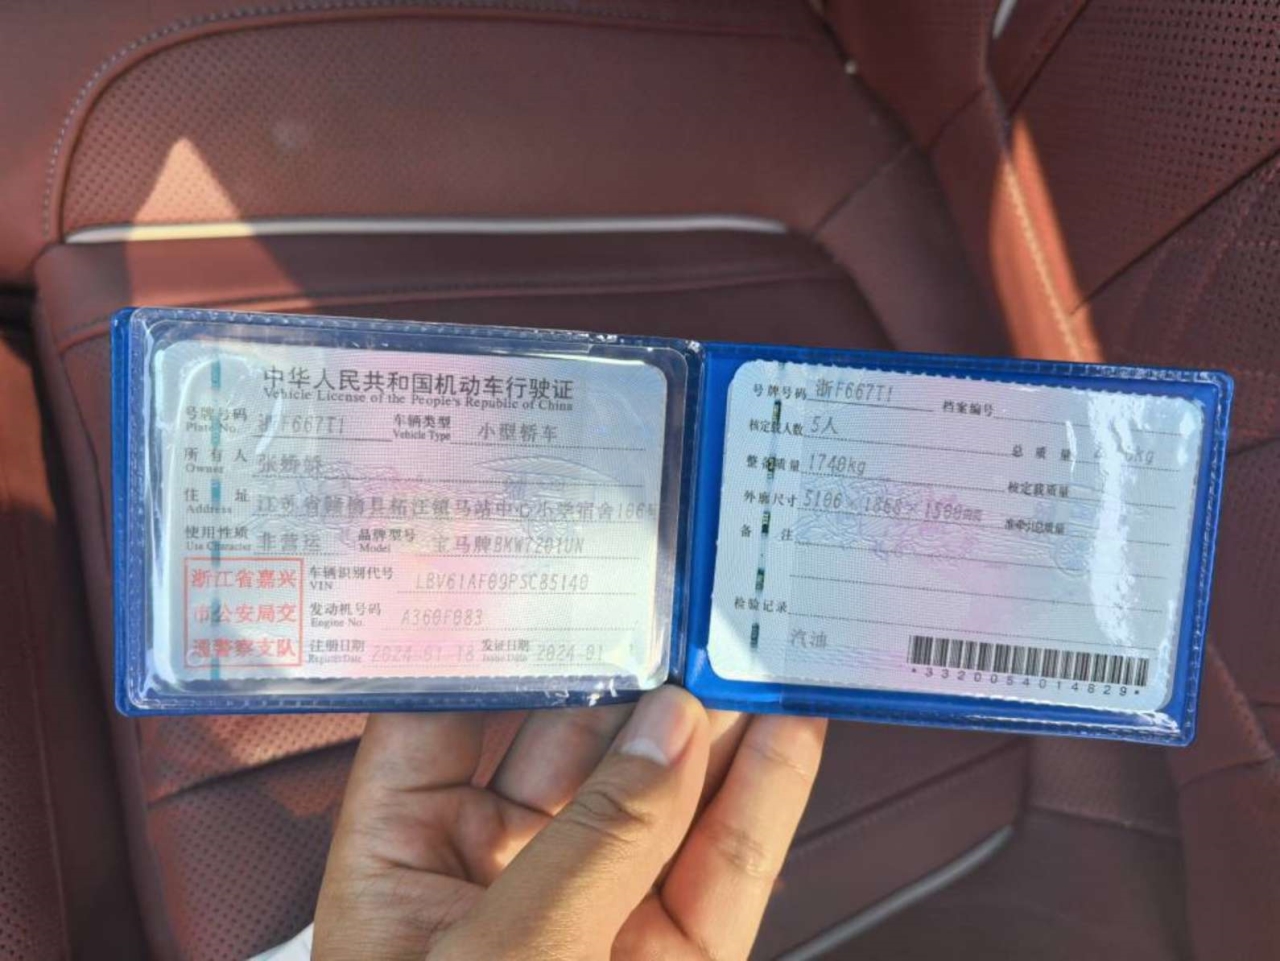 中华人民共和国机动车行驶证
Vehicle License of the People's Republic of China
号牌号码 浙F667T1 车辆类型 小型轿车
Plate No. Vehicle Type
所有人 张
Owner
住址 江苏省赣榆县柘汪镇马站中心小学宿舍106
Address
使用性质 非营运 品牌型号 宝马牌BMW7201UN
Use Character Model
浙江省嘉兴
市公安局交
通警察支队
车辆识别代号 LBV61AF09PSC85140
VIN
发动机号码 A360F083
Engine No.
注册日期 2024-01-18 发证日期 2024-01
Register Date Issue Date
号牌号码 浙F667T1 档案编号
核定载人数 5人 总质量 kg
整备质量 1740kg 核定载质量
外廓尺寸 5106×1868×1500mm 准牵引总质量
备注
检验记录
汽油
*3320054014829*